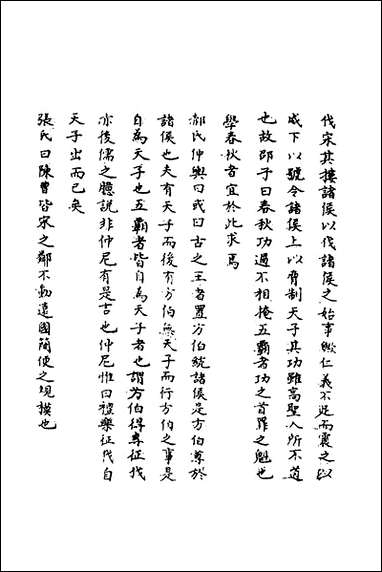 伐宋其摟諸侯以伐諸侯之始事歟仁義不足而震之以
威下以號令諸侯上以脅制天子其功雖高聖人所不道
也故邵子曰春秋功過不相掩五霸者功之首罪之魁也
學春秋者宜於此求焉
郝氏仲輿曰或曰古之王者置方伯統諸侯是方伯尊於
諸侯也夫有天子而後有方伯無天子而行方伯之事是
自為天子也五霸者皆自為天子者也謂方伯得專征伐
亦後儒之臆說非仲尼有是言也仲尼惟曰禮樂征伐自
天子出而已矣
張氏曰陳曹皆宋之鄰不動遠國簡便之規模也